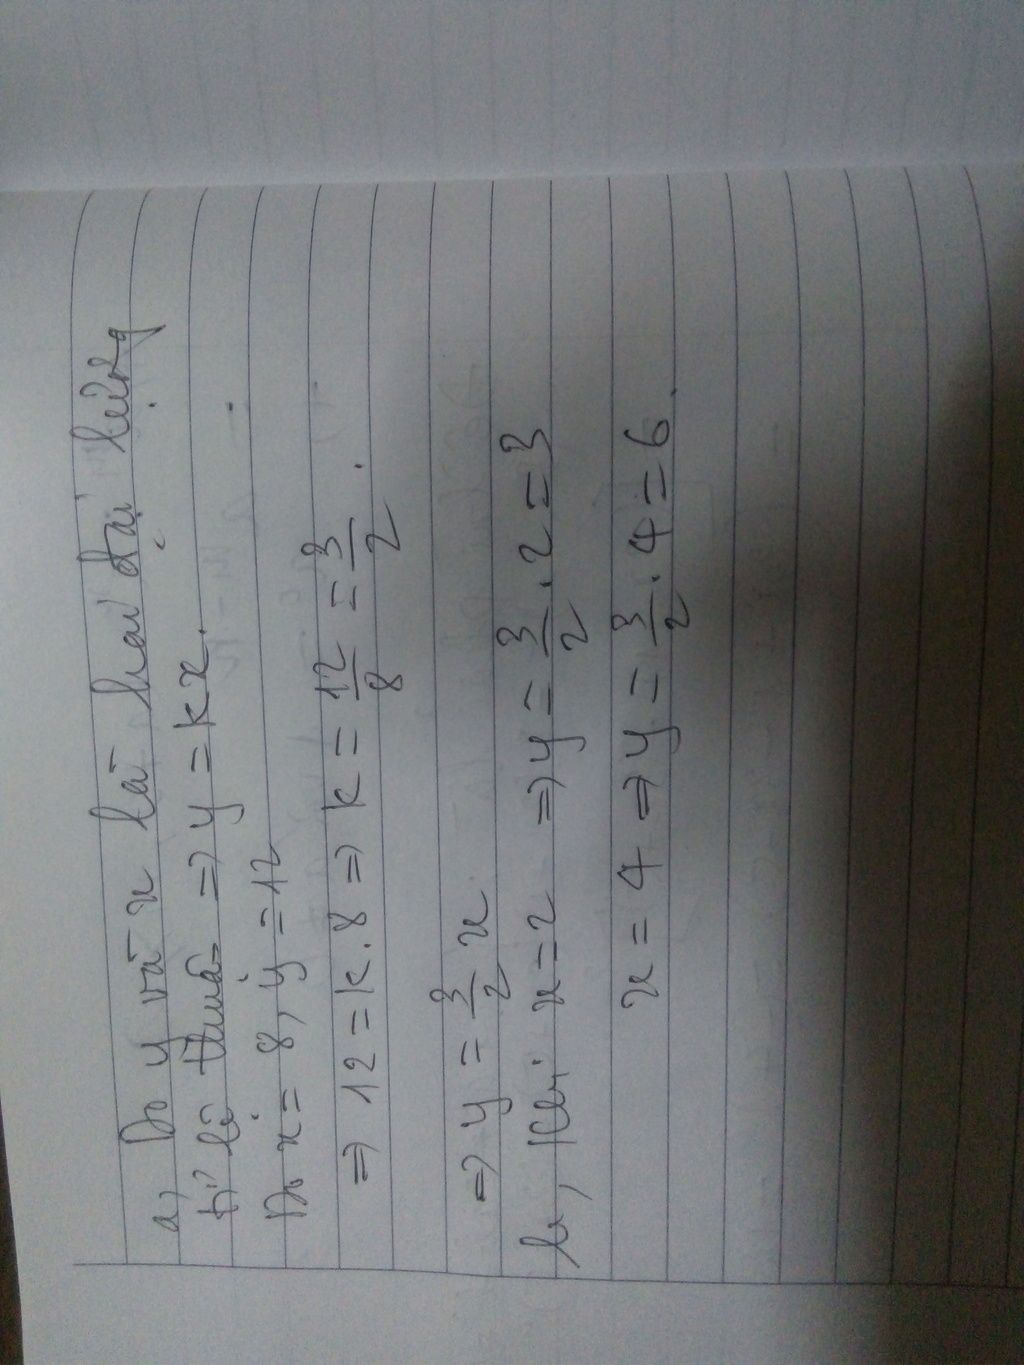 a, Do y và x là hai đại lượng
tỉ lệ thuận => y = kx.
Do x = 8, y = 12
=> 12 = k . 8 => k = 12/8 = 3/2 .
=> y = 3/2 x
b, Khi x = 2 => y = 3/2 . 2 = 3
x = 4 => y = 3/2 . 4 = 6 .